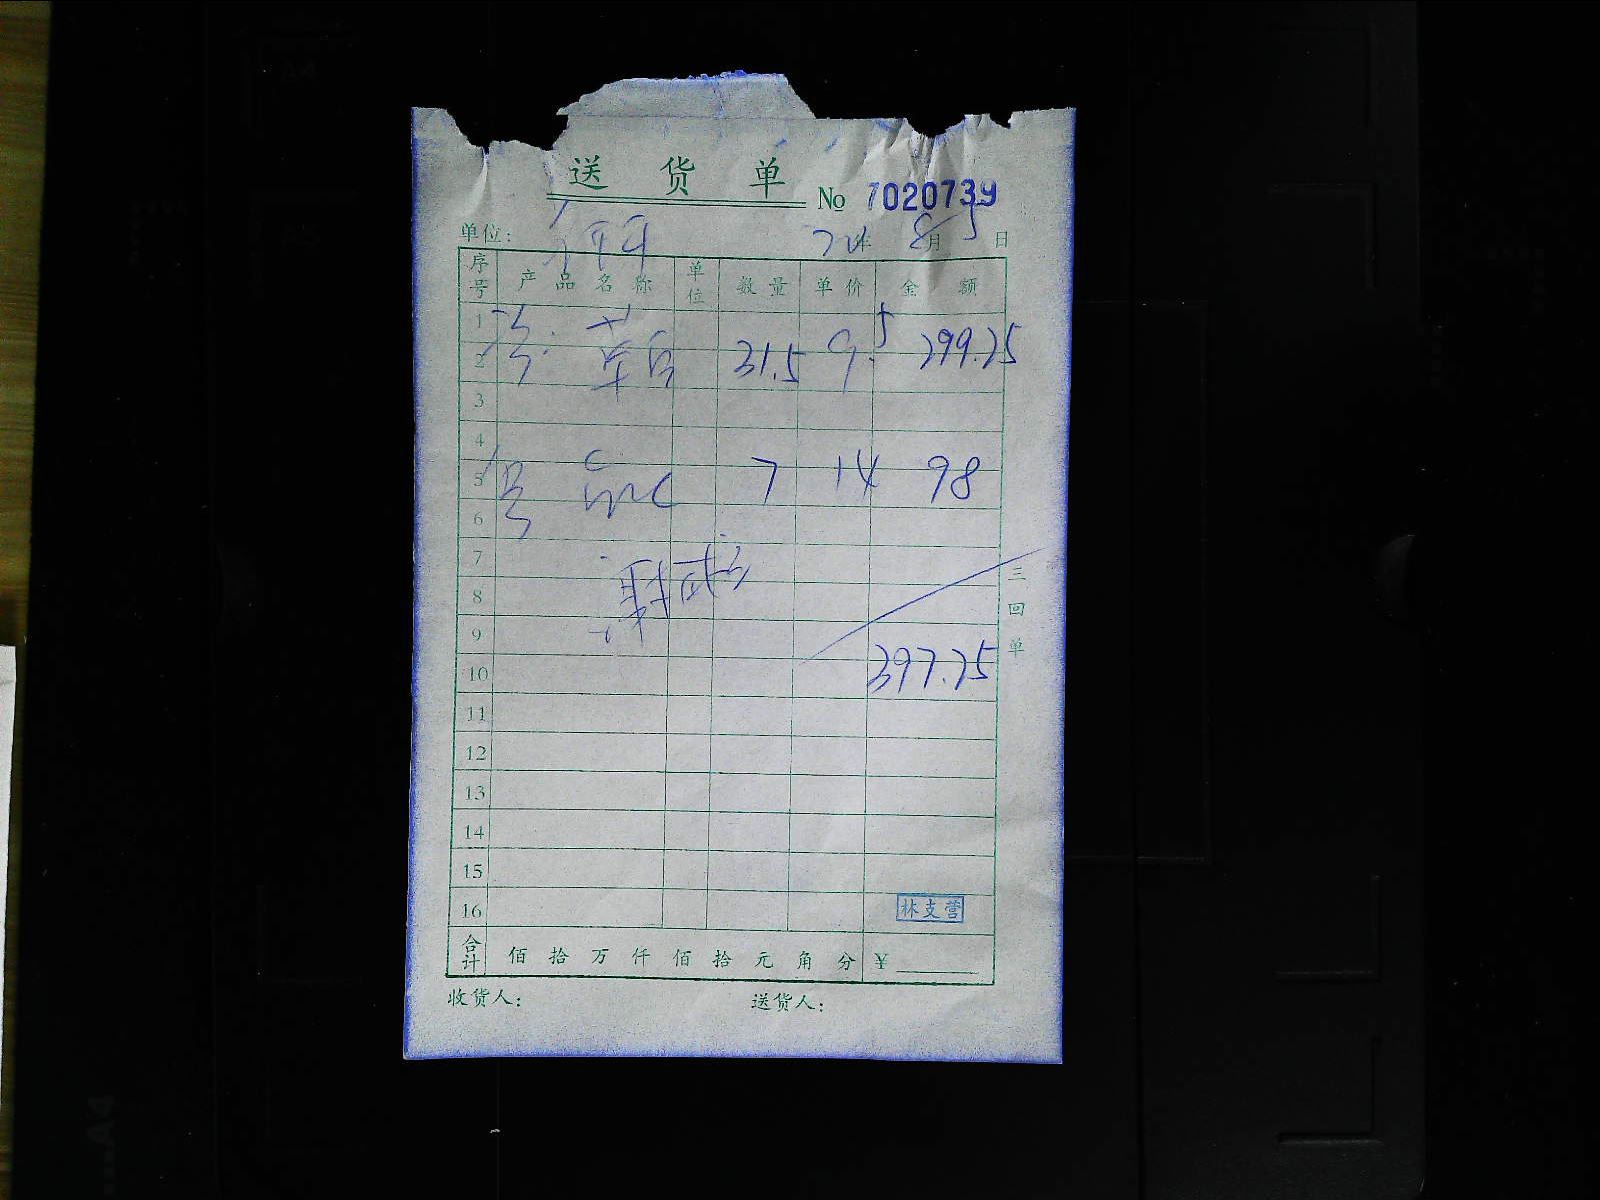 送 货 单
No 7020739
单位: 年 8月5日
序号 产品名称 单位 数量 单价 金额
1
2 31.5 9.5 299.25
3
4
5 7 14 98
6
7
8
9
10 397.75
11
12
13
14
15
16 林支营
合计 佰 拾 万 仟 佰 拾 元 角 分 ¥
收货人: 送货人:
三回单